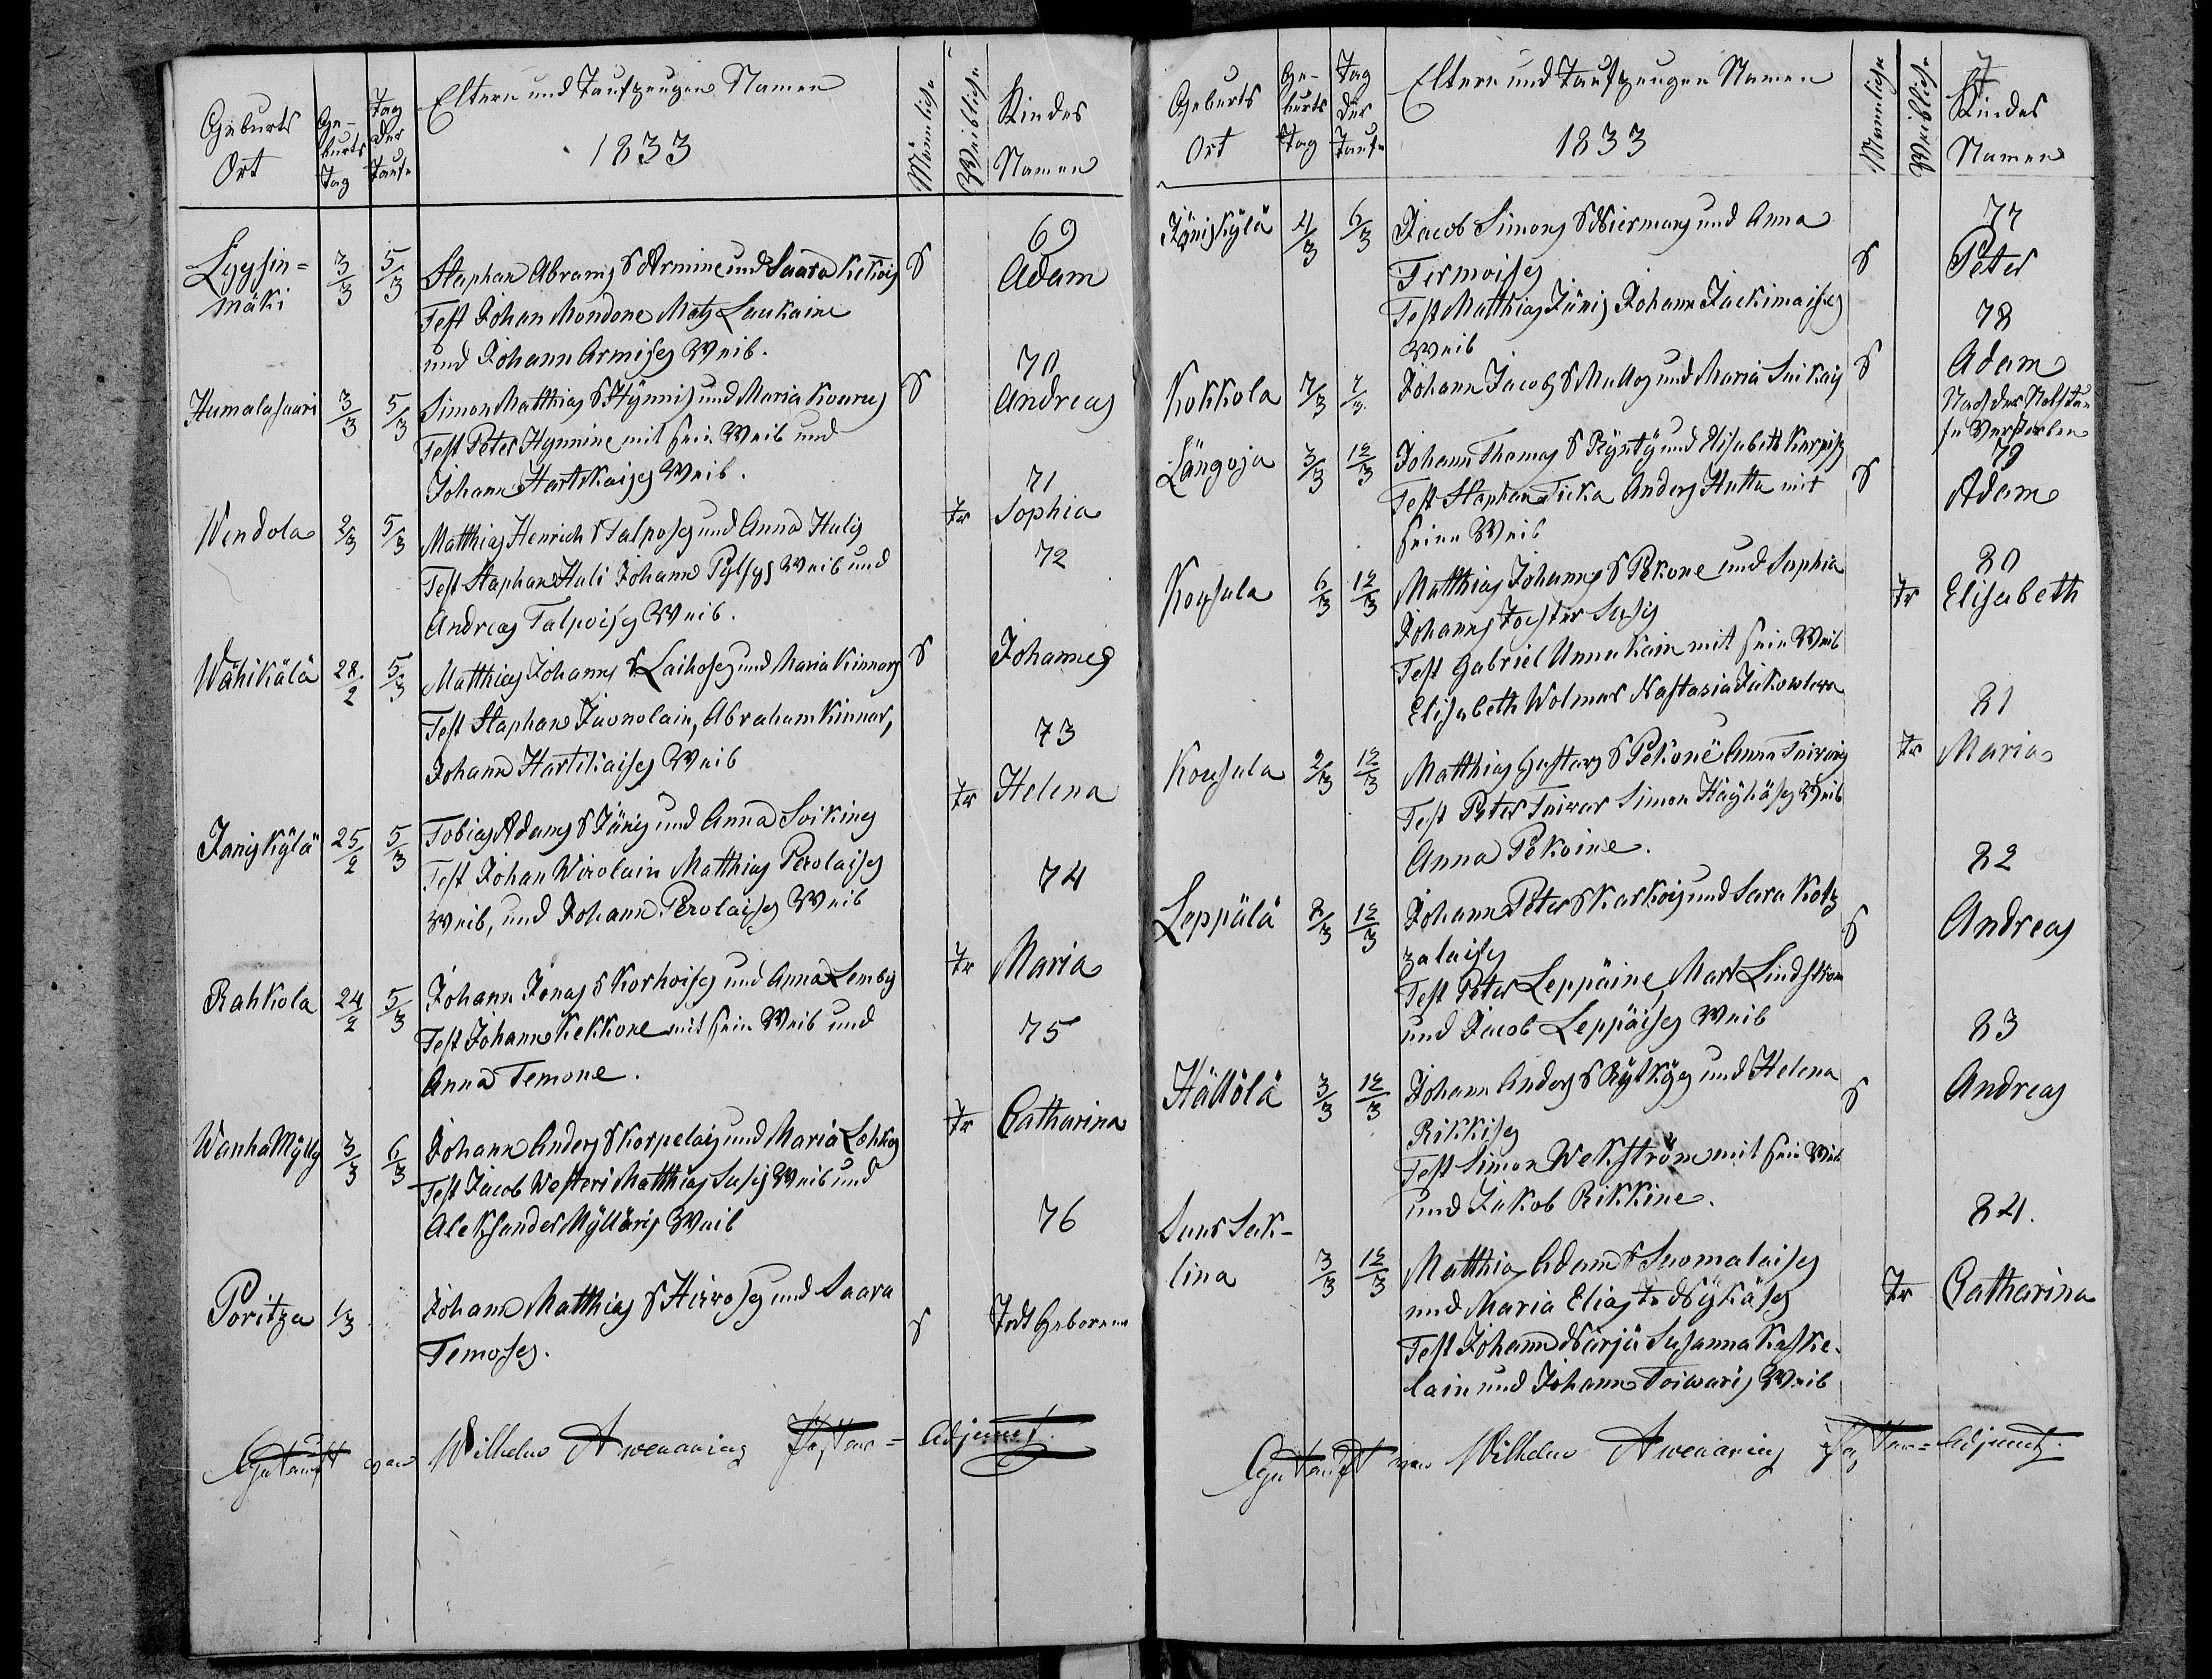 Geburts Ort | Geburts Tag | Tag der Taufe | Eltern und Taufzeugen Namen 1833 | Männliche | Weibliche | Kindes Namen
69
Lyysin= 3/3 5/3 Staphan Abrams S Armine und Saara Kekois S Adam
mäki Test Johan Mondone Mats Laukaine
und Johann Armises Weib.
70
Humalasaari 3/3 5/3 Simon Matthias S Hynnis und Maria Kourus S Andreas
Test Peter Hynnine mit sein Weib und
Johann Hartikaises Weib.
71
Wendola 2/3 5/3 Matthias Henrich S Talposes und Anna Hulis Tr Sophia
Test Staphan Huli Johann Pylsys Weib und
Andreas Talpoises Weib.
72
Wähikälä 28/2 5/3 Matthias Johanns S Laihoses und Maria Kinnars S Johannes
Test Staphan Juonolain, Abraham Kinnar,
Johann Hartikaises Weib
73
Janiskylä 25/2 5/3 Tobias Adams S Jänis und Anna Soikines Tr Helena
Test Johan Wirolain Matthias Perolaises
Weib, und Johann Perolaises Weib
74
Rahkola 24/2 5/3 Johann Jonas S Korhoises und Anna Lembis Tr Maria
Test Johann Kekkone mit sein Weib und
Anna Temone.
75
Wanha Mylly 3/3 6/3 Johann Anders S Korpelais und Maria Lohkos Tr Catharina
Test Jacob Westeri Matthias Susis Weib und
Aleksander Mylläris Weib
76
Poritza 1/3 Johann Matthias S Hirvoses und Saara S Todt Geborene
Temoses.
Getauft von Wilhelm Awenarius Pastor=Adjunct.
7
Geburts Ort | Geburts Tag | Tag der Taufe | Eltern und Taufzeugen Namen 1833 | Männliche | Weibliche | Kindes Namen
77
Jäniskylä 4/3 6/3 Jacob Simons S Niermans und Anna
Termoises S Peter
Test Matthias Jänis Johann Jackimaises
Weib
78
Kokkola 7/3 7/3 Johann Jacobs S Mullos und Maria Suikais S Adam
Nach der Nothtau
fe Verstorben
79
Längoja 3/3 12/3 Johann Thomas S Ryntÿ und Elisabeth Karpis S Adam
Test Staphan Ticka Anders Huttu mit
seine Weib
80
Kousula 6/3 12/3 Matthias Johanns S Pekone und Sophia Tr Elisabeth
Johanns Tochter Susis
Test Gabriel Unnukain mit sein Weib
Elisabeth Wolmar Nastasia Jakowlewa
81
Kousula 2/3 12/3 Matthias Gustavs S Pekonë Anna Toivaris Tr Maria
Test Peter Toiwar Simon Häyhäses Weib
Anna Pekoine.
82
Leppälä 2/3 12/3 Johann Peter S Karkois und Sara Kotz
zalaises S Andreas
Test Peter Leppäine Mart Lindstrom
und Jacob Leppäises Weib
83
Hättölä 3/3 12/3 Johann Anders S Rytkÿs und Helena S Andreas
Rikkises
Test Simon Wekström mit sein Weib
und Jakob Rikkine.
84.
Suur Suk-
lina 3/3 12/3 Matthias Adam S Suomalaises
und Maria Elias Tr Nykäses Tr Catharina
Test Johann Närjä Susanna Kaske-
lain und Johann Toiwaris Weib
Getauft von Wilhelm Awenarius Pastor=Adjunct.